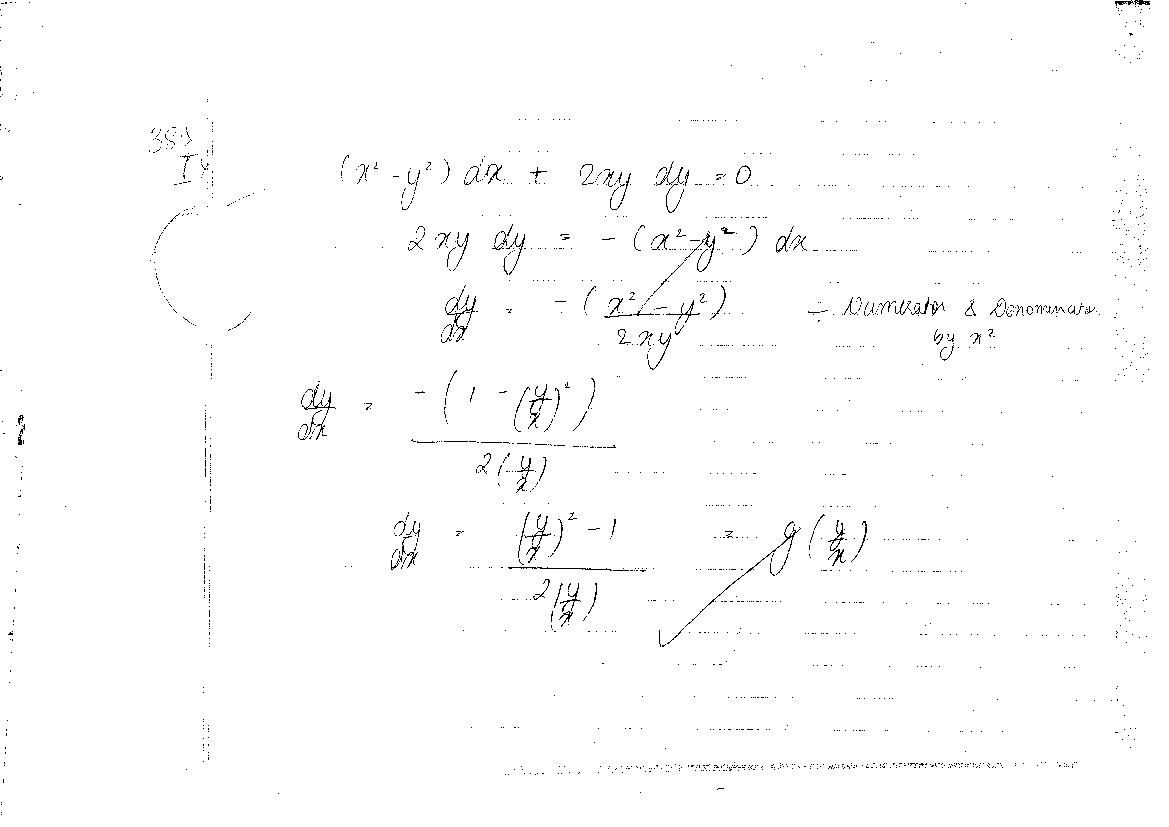 38)
IY
(x² - y²) dx + 2xy dy = 0
2xy dy = - (x² - y²) dx
dy/dx = - (x² - y²)/2xy ÷ Numerator & Denominator
by x²
dy/dx = - (1 - (y/x)²)/2(y/x)
dy/dx = ((y/x)² - 1)/2(y/x) = g(y/x)